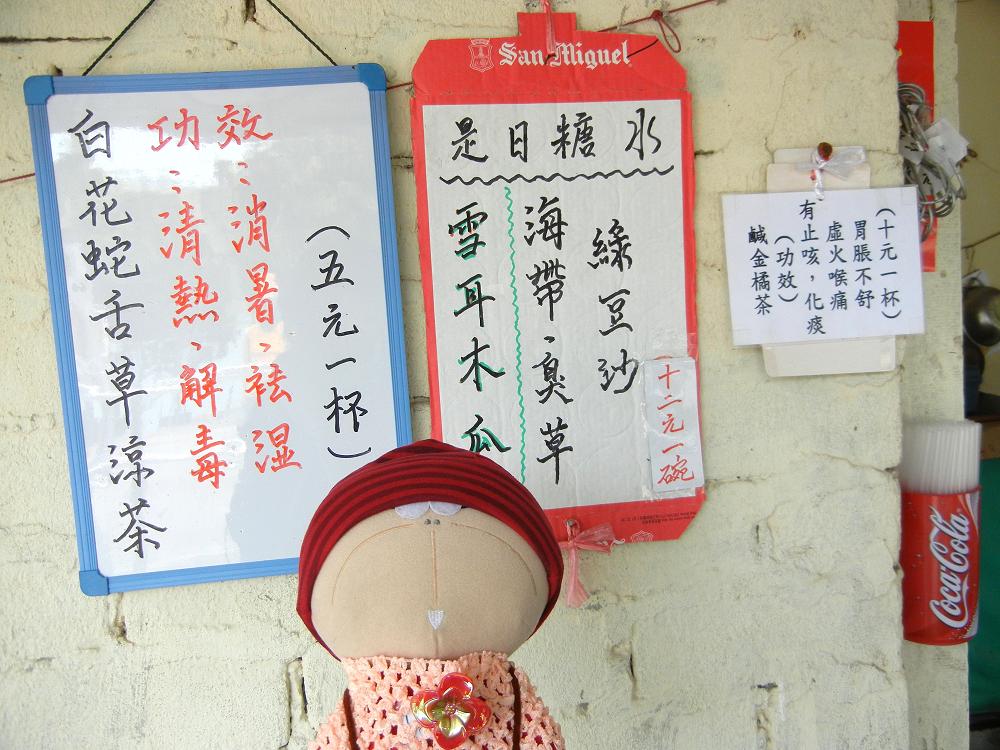 白花蛇舌草涼茶
功：清熱、解毒
效：消暑、祛湿
（五元一杯）
San Miguel
是日糖水
雪耳木瓜
海帶、臭草
綠豆沙
十二元一碗
鹹金橘茶
（功效）
有止咳，化痰
虛火喉痛
胃脹不舒
（十元一杯）
Coca-Cola